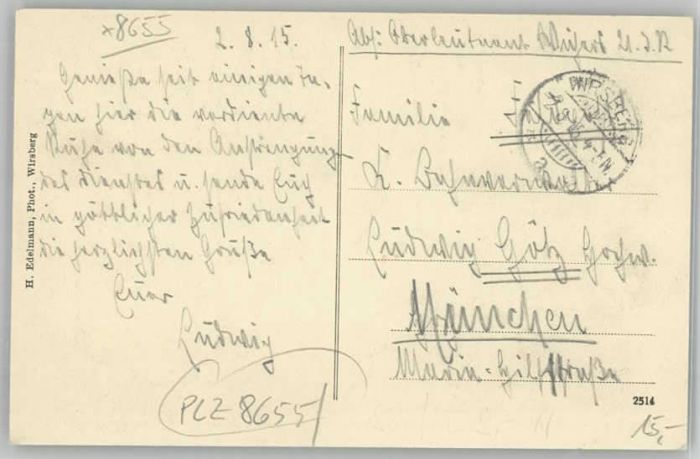 *8655
2.8.15.
Genieße seit einigen Ta-
gen hier die verdiente
Ruhe von den Anstrengung-
des Dienstes u. sende Euch
in göttlicher Zufriedenheit
die herzlichsten Grüße
Euer
Ludwig
PLZ 8655
H. Edelmann, Phot., Wirsberg
Abs: Oberleutnant 21. J.R
Familie
K.
Ludwig Götz
München
Maria-Hilfstraße
WIRSBERG
2514
15,-